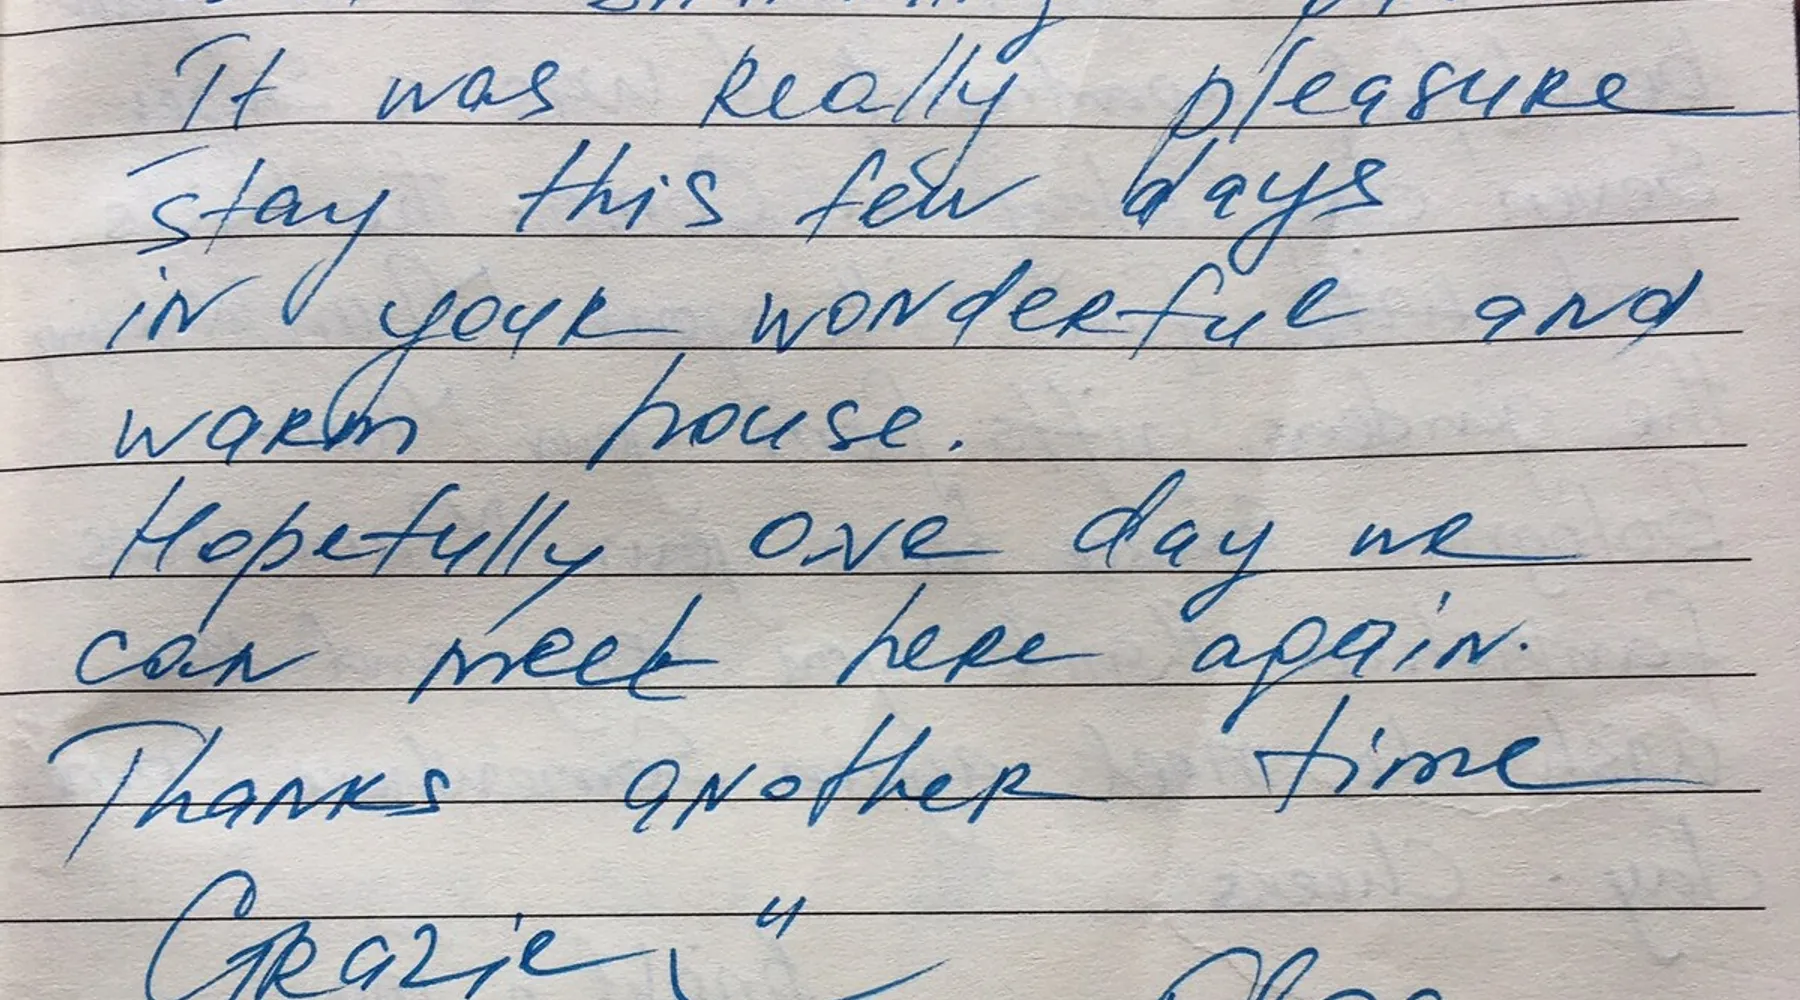 It was really pleasure
stay this few days
in your wonderful and
warm house.
Hopefully one day we
can meet here again.
Thanks another time
Grazie "